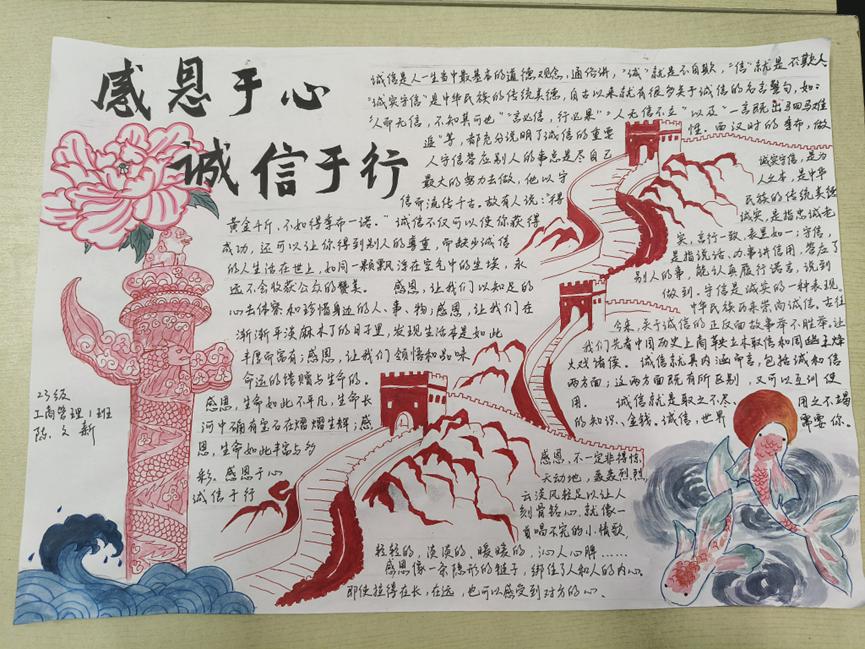 感恩于心
诚信于行
诚信是人一生当中最基本的道德观念,通俗讲,“诚”就是不自欺,“信”就是不欺人
“诚实守信”是中华民族的传统美德,自古以来就有很多关于诚信的名言警句,如:
“人而无信,不知其可也”“言必信,行必果”“人无信不立”以及“一言既出驷马难
追”等,都充分说明了诚信的重要性.而汉时的季布,做
人守信答应别人的事总是尽自己
最大的努力去做,他以守
信而流传千古.故有人说:“得
黄金千斤,不如得季布一诺.”诚信不仅可以使你获得
成功,还可以让你得到别人的尊重,而缺少诚信
的人生活在世上,如同一颗飘浮在空气中的尘埃,永
远不会收获公众的赞美。 感恩,让我们以知足的
心去体察和珍惜身边的人、事、物;感恩,让我们在
渐渐平淡麻木了的日子里,发现生活本是如此
丰厚而富有;感恩,让我们领悟和品味
命运的馈赠与生命的。
感恩,生命如此不平凡,生命长
河中确有宝石在熠熠生辉;感
恩,生命如此丰富与多
彩。感恩于心
诚信于行
诚实守信,是为
人之本,是中华
民族的传统美德
诚实,是指忠诚老
实,言行一致,表里如一;守信,
是指说话、办事讲信用,答应了
别人的事,能认真履行诺言,说到
做到.守信是诚实的一种表现。
中华民族历来崇尚诚信。古往
今来,关于诚信的正反面故事举不胜举.让
我们先看中国历史上商鞅立木取信和周幽王烽
火戏诸侯。 诚信就其内涵而言,包括诚和信
两方面;这两方面既有所区别,又可以互训使
用。 诚信就是取之不尽、用之不竭
的知识、金钱。诚信,世界需要你。
感恩、不一定非得惊
天动地,轰轰烈烈,
云淡风轻足以让人
刻骨铭心.就像一
首唱不完的小情歌,
轻轻的,淡淡的、暖暖的,沁人心脾……
感恩像一条隐形的链子,绑住了人和人的内心。
即使拉得在长,在远,也可以感受到对方的心.
23级
工商管理1班
陈文新